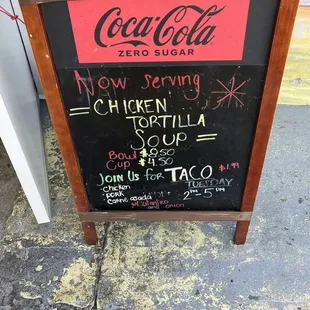 Coca-Cola
ZERO SUGAR
Now serving
CHICKEN
TORTILLA
Soup
Bowl $8.50
Cup $4.50
JOIN US for TACO $1.99
TUESDAY
chicken
pork 2-5pm
carne asada
onion